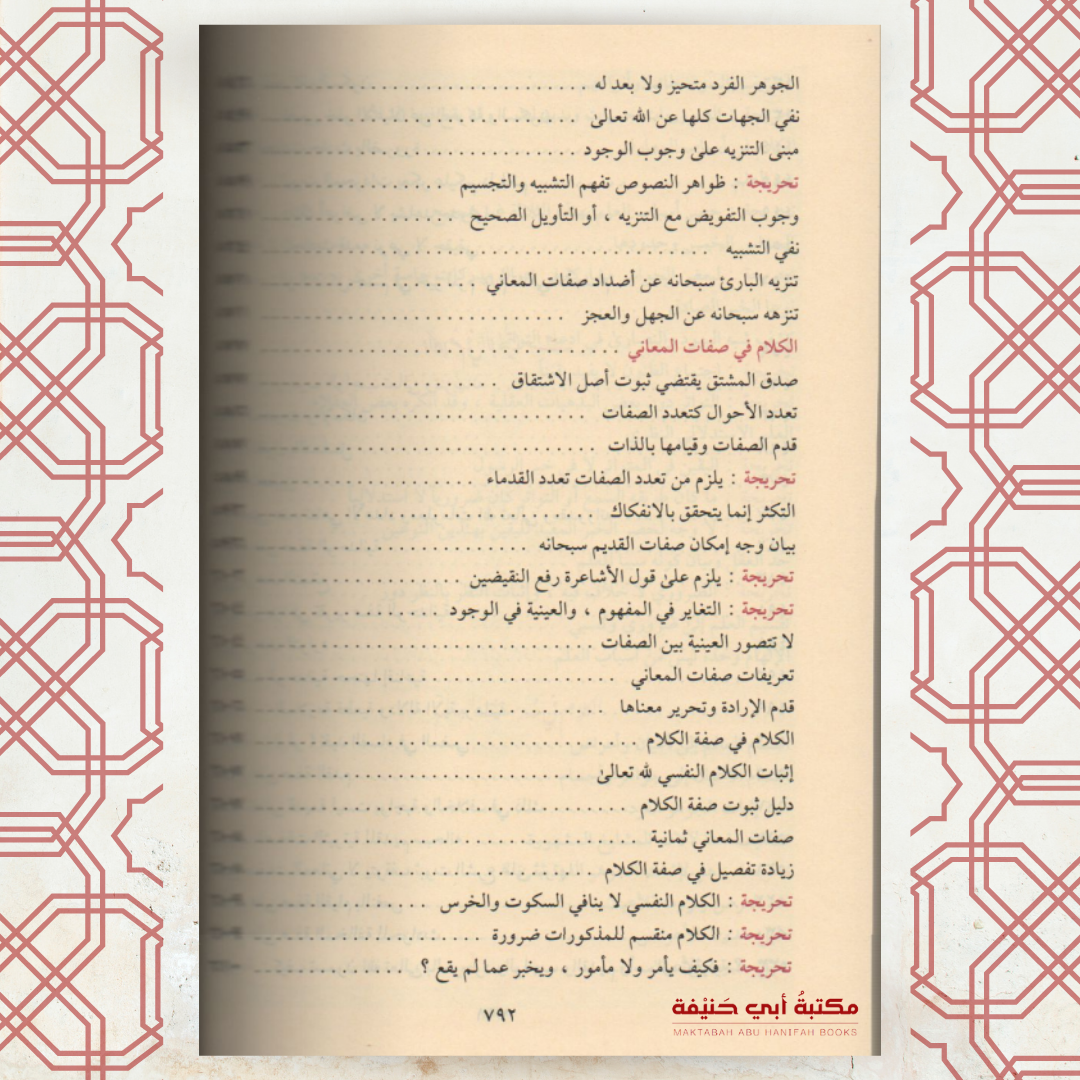 الجوهر الفرد متحيز ولا بعد له
نفي الجهات كلها عن الله تعالىٰ
مبنى التنزيه علىٰ وجوب الوجود
تحريجة : ظواهر النصوص تفهم التشبيه والتجسيم
وجوب التفويض مع التنزيه ، أو التأويل الصحيح
نفي التشبيه
تنزيه البارئ سبحانه عن أضداد صفات المعاني
تنزهه سبحانه عن الجهل والعجز
الكلام في صفات المعاني
صدق المشتق يقتضي ثبوت أصل الاشتقاق
تعدد الأحوال كتعدد الصفات
قدم الصفات وقيامها بالذات
تحريجة : يلزم من تعدد الصفات تعدد القدماء
التكثر إنما يتحقق بالانفكاك
بيان وجه إمكان صفات القديم سبحانه
تحريجة : يلزم علىٰ قول الأشاعرة رفع النقيضين
تحريجة : التغاير في المفهوم ، والعينية في الوجود
لا تتصور العينية بين الصفات
تعريفات صفات المعاني
قدم الإرادة وتحرير معناها
الكلام في صفة الكلام
إثبات الكلام النفسي لله تعالىٰ
دليل ثبوت صفة الكلام
صفات المعاني ثمانية
زيادة تفصيل في صفة الكلام
تحريجة : الكلام النفسي لا ينافي السكوت والخرس
تحريجة : الكلام منقسم للمذكورات ضرورة
تحريجة : فكيف يأمر ولا مأمور ، ويخبر عما لم يقع ؟
٧٩٢
مكتبةُ أبي حَنيْفة
MAKTABAH ABU HANIFAH BOOKS